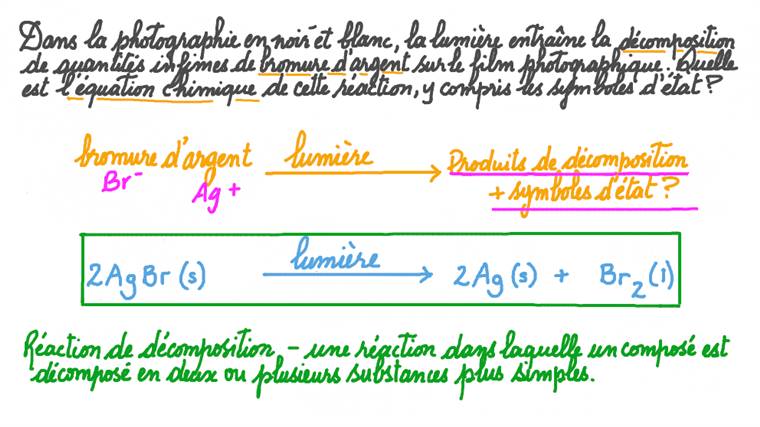 Dans la photographie en noir et blanc, la lumière entraîne la décomposition
de quantités infimes de bromure d'argent sur le film photographique. Quelle
est l'équation chimique de cette réaction, y compris les symboles d'état ?
bromure d'argent lumière → Produits de décomposition
Br⁻ Ag + + symboles d'état ?
lumière
2AgBr(s) → 2Ag(s) + Br₂(l)
Réaction de décomposition – une réaction dans laquelle un composé est
décomposé en deux ou plusieurs substances plus simples.